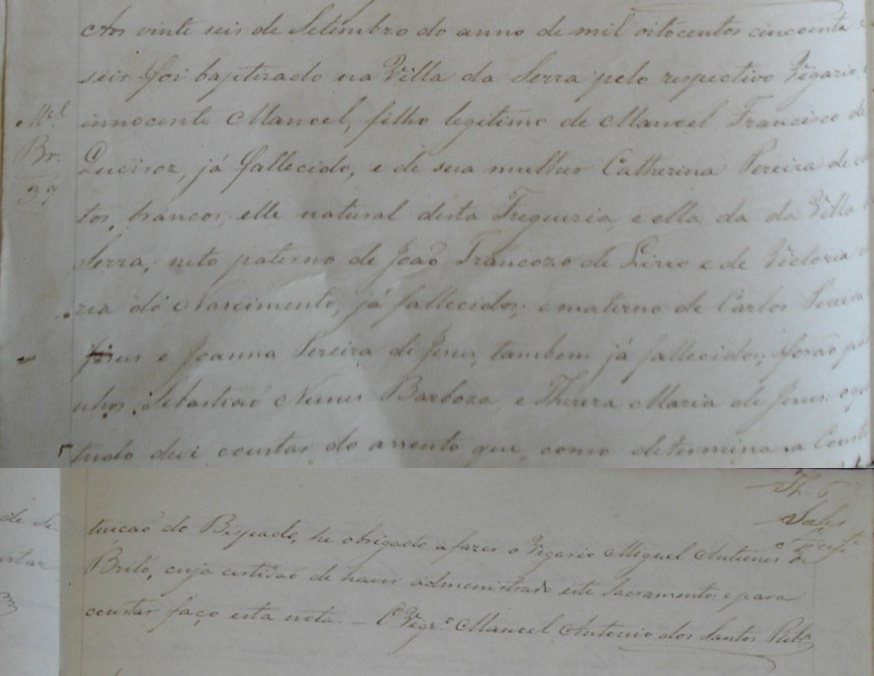 Aos vinte seis de Setembro do anno de mil oitocentos cincoenta e
seis foi baptizado na Villa da Serra pelo respectivo Vigario
Mel
innocente Manoel, filho legitimo de Manoel Francisco de
Br.
Queiroz, já fallecido, e de sua mulher Catherina Pereira de
tos, brancos, elle natural desta Freguezia, e ella da da Villa
Serra; neto paterno de João Francozo de Lirio e de Victoria
ria do Nascimento, já fallecidos; e materno de Carlos Pereira
Jesus e Joanna Pereira de Jesus, tambem já fallecidos; forão pa
nhos Sebastiao Nunes Barboza e Thereza Maria de Jesus: o q
tudo dei constar do assento que, como determina a Consti
Fl. 5
Sales
tuicaõ do Bispado, he obrigado a fazer o Vigario Miguel Antunes de
Brito, cuja certidaõ de haver administrado este Sacramento, e para
constar faço esta nota. — O Vigr.o Manoel Antonio dos Santos Ribr.o